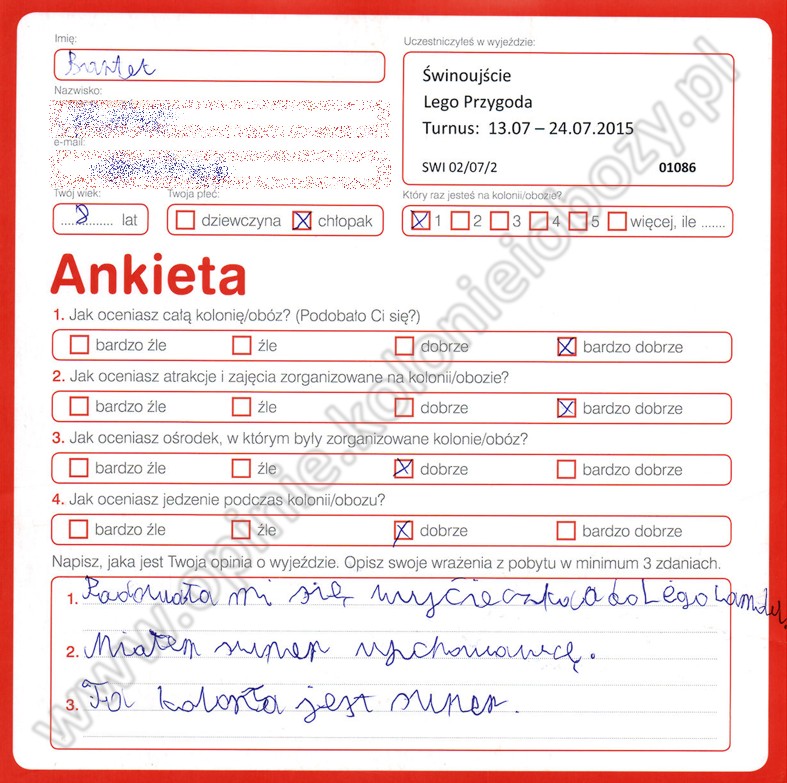 Imię:
Bartek
Uczestniczyłeś w wyjeździe:
Świnoujście
Lego Przygoda
Turnus: 13.07 – 24.07.2015
SWI 02/07/2 01086
Nazwisko:
e-mail:
Twój wiek:
8 lat
Twoja płeć:
dziewczyna chłopak
Który raz jesteś na kolonii/obozie?
1 2 3 4 5 więcej, ile .......
Ankieta
1. Jak oceniasz całą kolonię/obóz? (Podobało Ci się?)
bardzo źle źle dobrze bardzo dobrze
2. Jak oceniasz atrakcje i zajęcia zorganizowane na kolonii/obozie?
bardzo źle źle dobrze bardzo dobrze
3. Jak oceniasz ośrodek, w którym były zorganizowane kolonie/obóz?
bardzo źle źle dobrze bardzo dobrze
4. Jak oceniasz jedzenie podczas kolonii/obozu?
bardzo źle źle dobrze bardzo dobrze
Napisz, jaka jest Twoja opinia o wyjeździe. Opisz swoje wrażenia z pobytu w minimum 3 zdaniach.
1. mi się wycieczka do Lego
2. Miałem super wychowawcę.
3. Ta jest super.
www.opinie.kolonieiobozy.pl